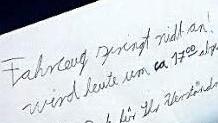 Fahrzeug springt nicht an!
wird heute um ca 17⁰⁰ abge
für Ihr Verständn